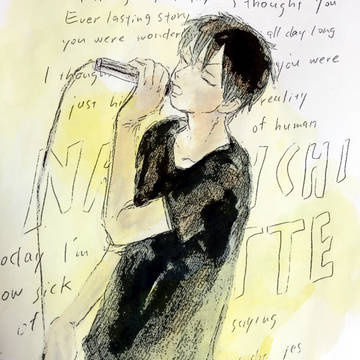 thought you
Ever lasting story
you were wonder all day long
I thought you were
just reality
of human
NA CHI
ITE
oday I'm
ow sick
of saying